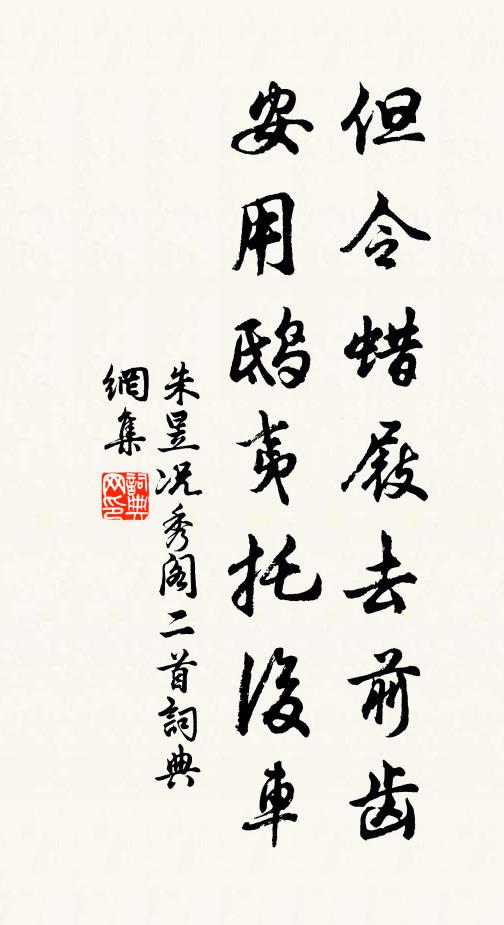 但令蜡屐去前齿
安用鸱夷托後車
朱昱况秀阁二首詞典
網集
詞典
网印